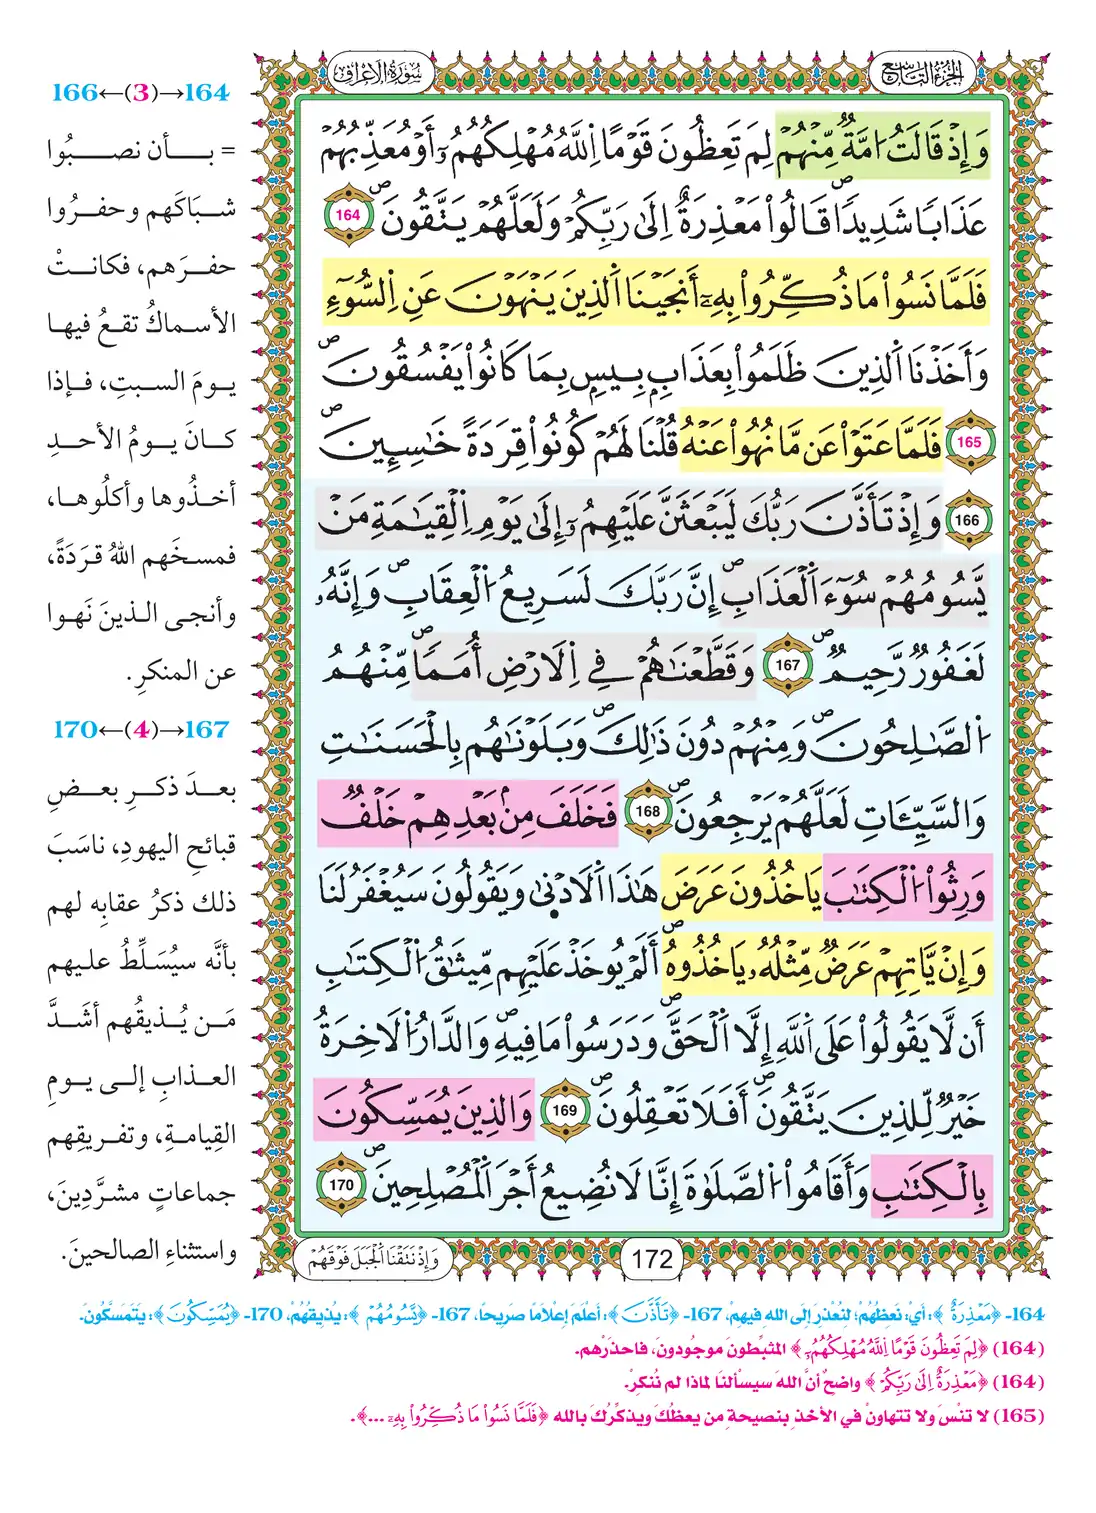 سُورَةُ الْاَعْرَافِ
الجُزْءُ التَّاسِعُ
وَإِذْ قَالَتُ امَّةٌ مِّنْهُمْ لِمَ تَعِظُونَ قَوْمًا اِللَّهُ مُهْلِكُهُمُۥٓ أَوْ مُعَذِّبُهُمْ
عَذَابًا شَدِيدًا قَالُواْ مَعْذِرَةٌ اِلَىٰ رَبِّكُمْ وَلَعَلَّهُمْ يَتَّقُونَ 164
فَلَمَّا نَسُواْ مَا ذُكِّرُواْ بِهِۦٓ أَنجَيْنَا اَلَّذِينَ يَنْهَوْنَ عَنِ اِلسُّوٓءِ
وَأَخَذْنَا اَلَّذِينَ ظَلَمُواْ بِعَذَابِۭ بِيسِۭ بِمَا كَانُواْ يَفْسُقُونَ
165 فَلَمَّا عَتَوْاْ عَن مَّا نُهُواْ عَنْهُ قُلْنَا لَهُمْ كُونُواْ قِرَدَةً خَٰسِـِٕينَ
166 وَإِذْ تَأَذَّنَ رَبُّكَ لَيَبْعَثَنَّ عَلَيْهِمُۥٓ إِلَىٰ يَوْمِ اِلْقِيَٰمَةِ مَنْ
يَّسُومُهُمْ سُوٓءَ اَلْعَذَابِ إِنَّ رَبَّكَ لَسَرِيعُ اُلْعِقَابِ وَإِنَّهُۥ
لَغَفُورٌ رَّحِيمٌ 167 وَقَطَّعْنَاهُمْ فِي اِلَارْضِ أُمَمًا مِّنْهُمُ
اُلصَّٰلِحُونَ وَمِنْهُمْ دُونَ ذَٰلِكَ وَبَلَوْنَٰهُم بِالْحَسَنَٰتِ
وَالسَّيِّـَٔاتِ لَعَلَّهُمْ يَرْجِعُونَ 168 فَخَلَفَ مِنۢ بَعْدِهِمْ خَلْفٌ
وَرِثُواْ اُلْكِتَٰبَ يَاخُذُونَ عَرَضَ هَٰذَا اَلَادْنۭىٰ وَيَقُولُونَ سَيُغْفَرُ لَنَا
وَإِنْ يَّاتِهِمْ عَرَضٌ مِّثْلُهُۥ يَاخُذُوهُ أَلَمْ يُوخَذْ عَلَيْهِم مِّيثَٰقُ اُلْكِتَٰبِ
أَن لَّا يَقُولُواْ عَلَى اَللَّهِ إِلَّا اَلْحَقَّ وَدَرَسُواْ مَا فِيهِ وَالدَّارُ اُلَاخِرَةُ
خَيْرٌ لِّلذِينَ يَتَّقُونَ أَفَلَا تَعْقِلُونَ 169 وَالذِينَ يُمَسِّكُونَ
بِالْكِتَٰبِ وَأَقَامُواْ اُلصَّلَوٰةَ إِنَّا لَا نُضِيعُ أَجْرَ اَلْمُصْلِحِينَ 170
وَإِذْ نَتَقْنَا اَلْجَبَلَ فَوْقَهُمْ
172
164→(3)←166
= بــأن نصــبُوا
شبَاكَهم وحفرُوا
حفرَهم، فكانتْ
الأسماكُ تقعُ فيها
يومَ السبتِ، فإذا
كانَ يومُ الأحدِ
أخذُوها وأكلُوها،
فمسخَهم اللهُ قرَدَةً،
وأنجى الذينَ نَهوا
عن المنكرِ.
167→(4)←170
بعدَ ذكرِ بعضِ
قبائحِ اليهودِ، ناسَبَ
ذلك ذكرُ عقابِه لهم
بأنَّه سيُسَلِّطُ عليهم
مَن يُذيقُهم أشَدَّ
العذابِ إلى يومِ
القِيامةِ، وتفريقِهم
جماعاتٍ مشرَّدِينَ،
واستثناءِ الصالحينَ.
164- ﴿مَعْذِرَةٌ﴾: أيْ: نَعِظُهُمْ؛ لنُعْذرَ إلَى اللهِ فيهِمْ، 167- ﴿تَأَذَّنَ﴾: أعْلَمَ إعْلَامًا صَريحًا، 167- ﴿يَّسُومُهُمْ﴾: يُذيقُهُمْ، 170- ﴿يُمَسِّكُونَ﴾: يتَمَسَّكُونَ.
(164) ﴿لِمَ تَعِظُونَ قَوْمًا اِللَّهُ مُهْلِكُهُمُۥٓ﴾ المثبِّطون موجُودون، فاحذرْهم.
(164) ﴿مَعْذِرَةٌ اِلَىٰ رَبِّكُمْ﴾ واضحٌ أنَّ اللهَ سيسألنا لماذا لم نُنكرْ.
(165) لا تنْسَ ولا تتهاونْ في الأخذِ بنصيحةِ من يعظُكَ ويذكِّرُكَ بالله ﴿فَلَمَّا نَسُواْ مَا ذُكِّرُواْ بِهِۦٓ ...﴾.